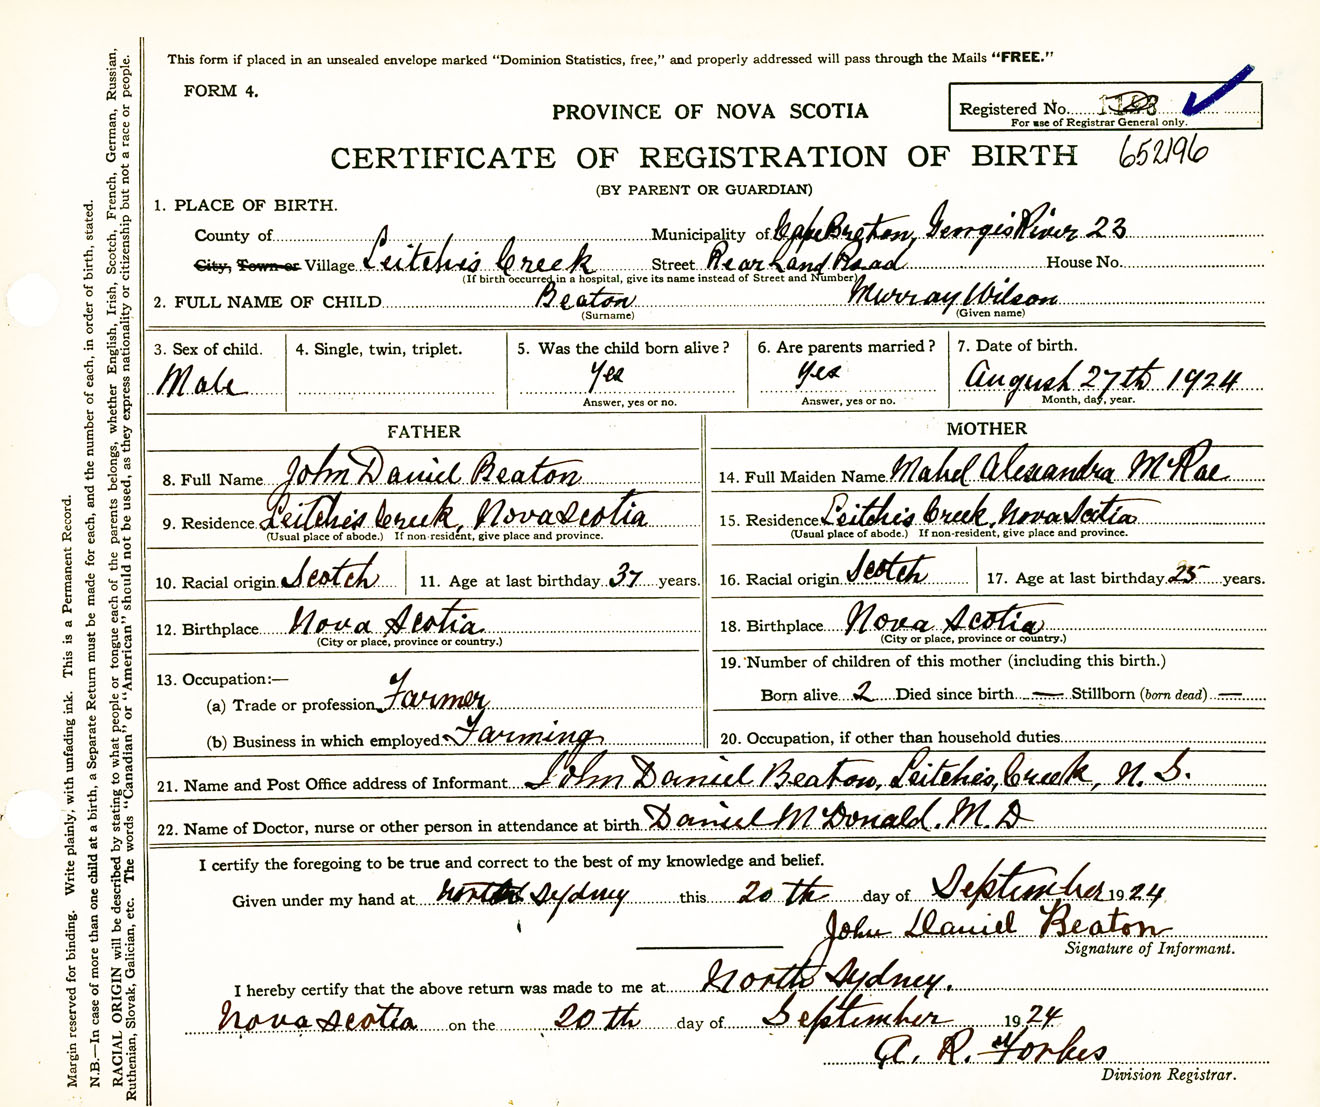 This form if placed in an unsealed envelope marked "Dominion Statistics, free," and properly addressed will pass through the Mails "FREE."
FORM 4.
PROVINCE OF NOVA SCOTIA
Registered No.
For use of Registrar General only.
CERTIFICATE OF REGISTRATION OF BIRTH 652196
(BY PARENT OR GUARDIAN)
1. PLACE OF BIRTH.
County of Municipality of Cape Breton, Georges River 23
City, Town or Village Leitches Creek Street Rear Land Road House No.
(If birth occurred in a hospital, give its name instead of Street and Number)
2. FULL NAME OF CHILD Beaton Murray Wilson
(Surname) (Given name)
3. Sex of child. 4. Single, twin, triplet. 5. Was the child born alive? 6. Are parents married? 7. Date of birth.
Male Yes Yes August 27th 1924
Answer, yes or no. Answer, yes or no. Month, day, year.
FATHER MOTHER
8. Full Name John Daniel Beaton 14. Full Maiden Name Mabel Alexandra McRae
9. Residence Leitches Creek, Nova Scotia 15. Residence Leitches Creek, Nova Scotia
(Usual place of abode.) If non-resident, give place and province. (Usual place of abode.) If non-resident, give place and province.
10. Racial origin Scotch 11. Age at last birthday 37 years. 16. Racial origin Scotch 17. Age at last birthday 25 years.
12. Birthplace Nova Scotia 18. Birthplace Nova Scotia
(City or place, province or country.) (City or place, province or country.)
13. Occupation:— 19. Number of children of this mother (including this birth.)
(a) Trade or profession Farmer Born alive 2 Died since birth — Stillborn (born dead) —
(b) Business in which employed Farming 20. Occupation, if other than household duties
21. Name and Post Office address of Informant John Daniel Beaton, Leitches Creek, N. S.
22. Name of Doctor, nurse or other person in attendance at birth Daniel McDonald. M. D
I certify the foregoing to be true and correct to the best of my knowledge and belief.
Given under my hand at North Sydney this 20 th day of September 1924
John Daniel Beaton
Signature of Informant.
I hereby certify that the above return was made to me at North Sydney.
Nova Scotia on the 20 th day of September 1924
A. R. Forbes
Division Registrar.
Margin reserved for binding. Write plainly, with unfading ink. This is a Permanent Record.
N.B.—In case of more than one child at a birth, a Separate Return must be made for each, and the number of each, in order of birth, stated.
RACIAL ORIGIN will be described by stating to what people or tongue each of the parents belongs, whether English, Irish, Scotch, French, German, Russian,
Ruthenian, Slovak, Galician, etc. The words "Canadian" or "American" should not be used, as they express nationality or citizenship but not a race or people.